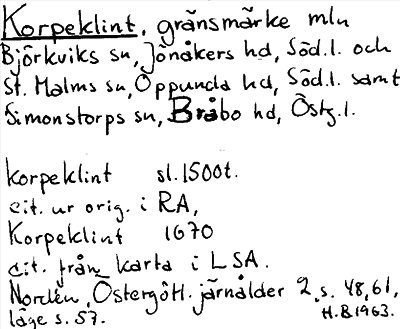 Korpeklint, gränsmärke mln
Björkviks sn, Jönåkers hd, Söd.l. och
St. Malms sn, Oppunda hd, Söd.l. samt
Simonstorps sn, Bråbo hd, Östg.l.
korpeklint sl.1500t.
cit. ur orig. i RA,
Korpeklint 1670
cit. från karta i LSA.
Nordén, Östergötl. järnålder 2, s. 48, 61,
läge s. 57. H.B 1963.